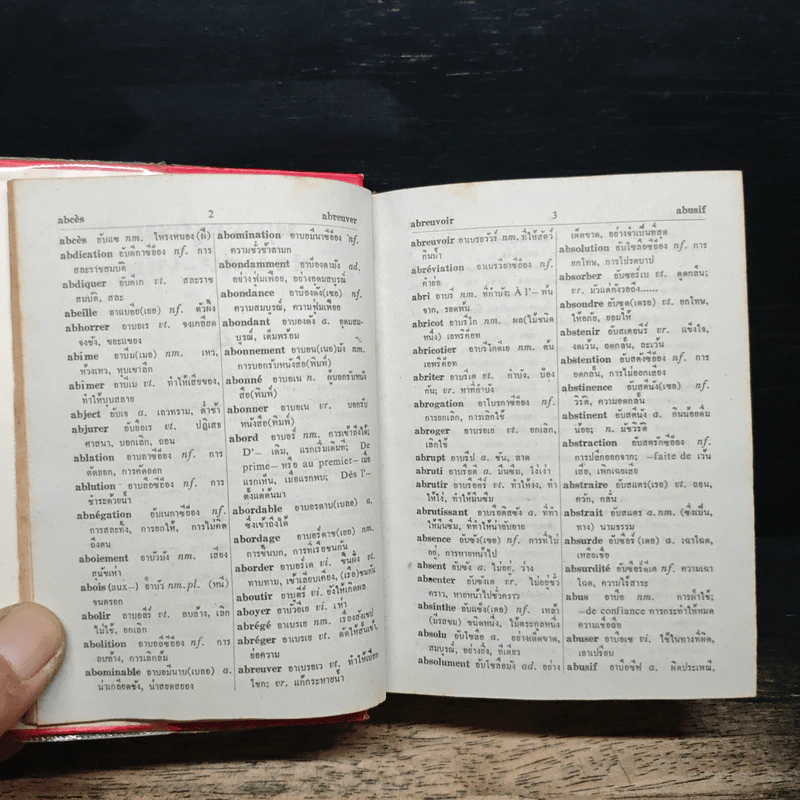 abcès 2 abreuver
abcès อับแซ nm. โพรงหนอง(ฝี)
abdication อับดิกาซิออง nf. การ
สละราชสมบัติ
abdiquer อับดิเก vt. สละราช
สมบัติ, สละ
abeille อาแบย(เยอ) nf. ตัวผึ้ง
abhorrer อาบอเร vt. จงเกลียด
จงชัง, ขยะแขยง
abîme อาบีม(เมอ) nm. เหว,
ห้วงเหว, หุบเขาลึก
abîmer อาบีเม vt. ทำให้เสียของ,
ทำให้บุบสลาย
abject อับเจ a. เลวทราม, ต่ำช้า
abjurer อับยือเร vt. ปฏิเสธ
ศาสนา, บอกเลิก, ถอน
ablation อาบลาซิออง nf. การ
ตัดออก, การคัดออก
ablution อาบลือซิออง nf. การ
ชำระด้วยน้ำ
abnégation อับเนกาซิออง nf.
การสละทิ้ง, การยกให้, การไม่คิด
ถึงตน
aboiement อาบัวมัง nm. เสียง
สุนัขเห่า
abois (aux—) อาบัว nm.pl. (หนี)
จนตรอก
abolir อาบอลีร์ vt. ลบล้าง, เลิก
ไม่ใช้, ยกเลิก
abolition อาบอลิซิออง nf. การ
ลบล้าง, การเลิกล้ม
abominable อาบอมีนาบ(เบลอ) a.
น่าเกลียดชัง, น่าสยดสยอง
abomination อาบอมีนาซิออง nf.
ความชั่วช้าลามก
abondamment อาบองดามัง ad.
อย่างฟุ่มเฟือย, อย่างอุดมสมบูรณ์
abondance อาบองดัง(เซอ) nf.
ความสมบูรณ์, ความฟุ่มเฟือย
abondant อาบองดัง a. อุดมสม-
บูรณ์, เต็มพร้อม
abonnement อาบอน(เนอ)มัง nm.
การบอกรับหนังสือ(พิมพ์)
abonné อาบอเน n. ผู้บอกรับหนัง
สือ(พิมพ์)
abonner อาบอเน vr. บอกรับ
หนังสือ(พิมพ์)
abord อาบอร์ nm. การเข้าถึงได้;
D'— เดิม, แรกเริ่มเดิมที; De
prime— หรือ au premier—เมื่อ
แรกเห็น, เมื่อแรกพบ; Dès l'—
ตั้งแต่ต้นมา
abordable อาบอรดาบ(เบลอ) a.
ซึ่งเข้าถึงได้
abordage อาบอร์ดาช(เยอ) nm.
การขึ้นบก, การที่เรือชนกัน
aborder อาบอร์เด vt. ขึ้นฝั่ง vt.
ทาบทาม, เข้าเลียบเคียง, (เรือ)ชนกัน
aboutir อาบูตีร์ vi. ยังให้เกิดผล
aboyer อาบัวเย vi. เห่า
abrégé อาเบรเย nm. เรื่องสังเขป
abréger อาเบรเย vt. ตัดให้สั้นเข้า,
ย่อความ
abreuver อาเบรอเว vt. ทำให้เปียก
โชก; vr. แก้กระหายน้ำ
abreuvoir 3 abusif
abreuvoir อาเบรอวัวร์ nm. ที่ให้สัตว์
กินน้ำ
abréviation อาเบรวิอาซิออง nf.
คำย่อ
abri อาบรี nm. ที่กำบัง; À l'— พ้น
จาก, รอดพ้น
abricot อาบรีโก nm. ผล(ไม้ชนิด
หนึ่ง) เอพริค็อท
abricotier อาบรีโกติเอ nm. ต้น
เอพริค็อท
abriter อาบรีเต vt. กำบัง, ป้อง
กัน; vr. หาที่กำบัง
abrogation อาโบรกาซิออง nf.
การยกเลิก, การเลิกใช้
abroger อาบรอเย vt. ยกเลิก,
เลิกใช้
abrupt อาบรึป a. ชัน, ลาด
abruti อาบรือตี a. มึนซึม, โง่เง่า
abrutir อาบรือตีร์ vt. ทำให้งง, ทำ
ให้โง่, ทำให้มึนซึม
abrutissant อาบรือตีสซัง a. ที่ทำ
ให้มึนซึม, ที่ทำให้น่าอับอาย
absence อับซัง(เซอ) nf. การที่ไม่
อยู่, การหายหน้าไป
absent อับซัง a. ไม่อยู่, ว่าง
absenter อับซังเต vr. ไม่อยู่ชั่ว
คราว, หายหน้าไปชั่วคราว
absinthe อับแซ็ง(เตอ) nf. เหล้า
(มีรสขม) ชนิดหนึ่ง, ไม้ตระกูลหนึ่ง
absolu อับโซลือ a. อย่างเด็ดขาด,
สมบูรณ์, อย่างยิ่ง, ทีเดียว
absolument อับโซลือมัง ad. อย่าง
เด็ดขาด, อย่างจำเป็นที่สุด
absolution อับโซลือซิออง nf. การ
ยกโทษ, การโปรดบาป
absorber อับซอร์เบ vt. ดูดกลืน;
vr. มัวแต่กังวลถึง......
absoudre อับซูด(เดรอ) vt. ยกโทษ,
ให้อภัย, ยอมให้
abstenir อับสเตอนีร์ vr. แข็งใจ,
งดเว้น, อดกลั้น, ละเว้น
abstention อับสตังซิออง nf. การ
อดกลั้น, การไม่ออกเสียง
abstinence อับสตีนัง(เซอ) nf.
วิรัติ, ความอดกลั้น
abstinent อับสตีนัง a. กินน้อยดื่ม
น้อย; n. มัชวิรัติ
abstraction อับสตรักซิออง nf.
การปลีกออกจาก; —faite de เว้น
เสีย, เพิกเฉยเสีย
abstraire อับสแตร(เรอ) vt. ถอน,
ควัก, กลั่น
abstrait อับสแตร a.nm. (ซึ่งเป็น,
ทาง) นามธรรม
absurde อับซือร์ (เดอ) a. เฉาโฉด,
เหลือเชื่อ
absurdité อับซือร์ดีเต nf. ความเฉา
โฉด, ความไร้สาระ
abus อาบือ nm. การผิดใช้;
—de confiance การกระทำให้หมด
ความเชื่อถือ
abuser อาบือเซ vi. ใช้ในทางที่ผิด,
เอาเปรียบ
abusif อาบือซีฟ a. ผิดประเพณี,